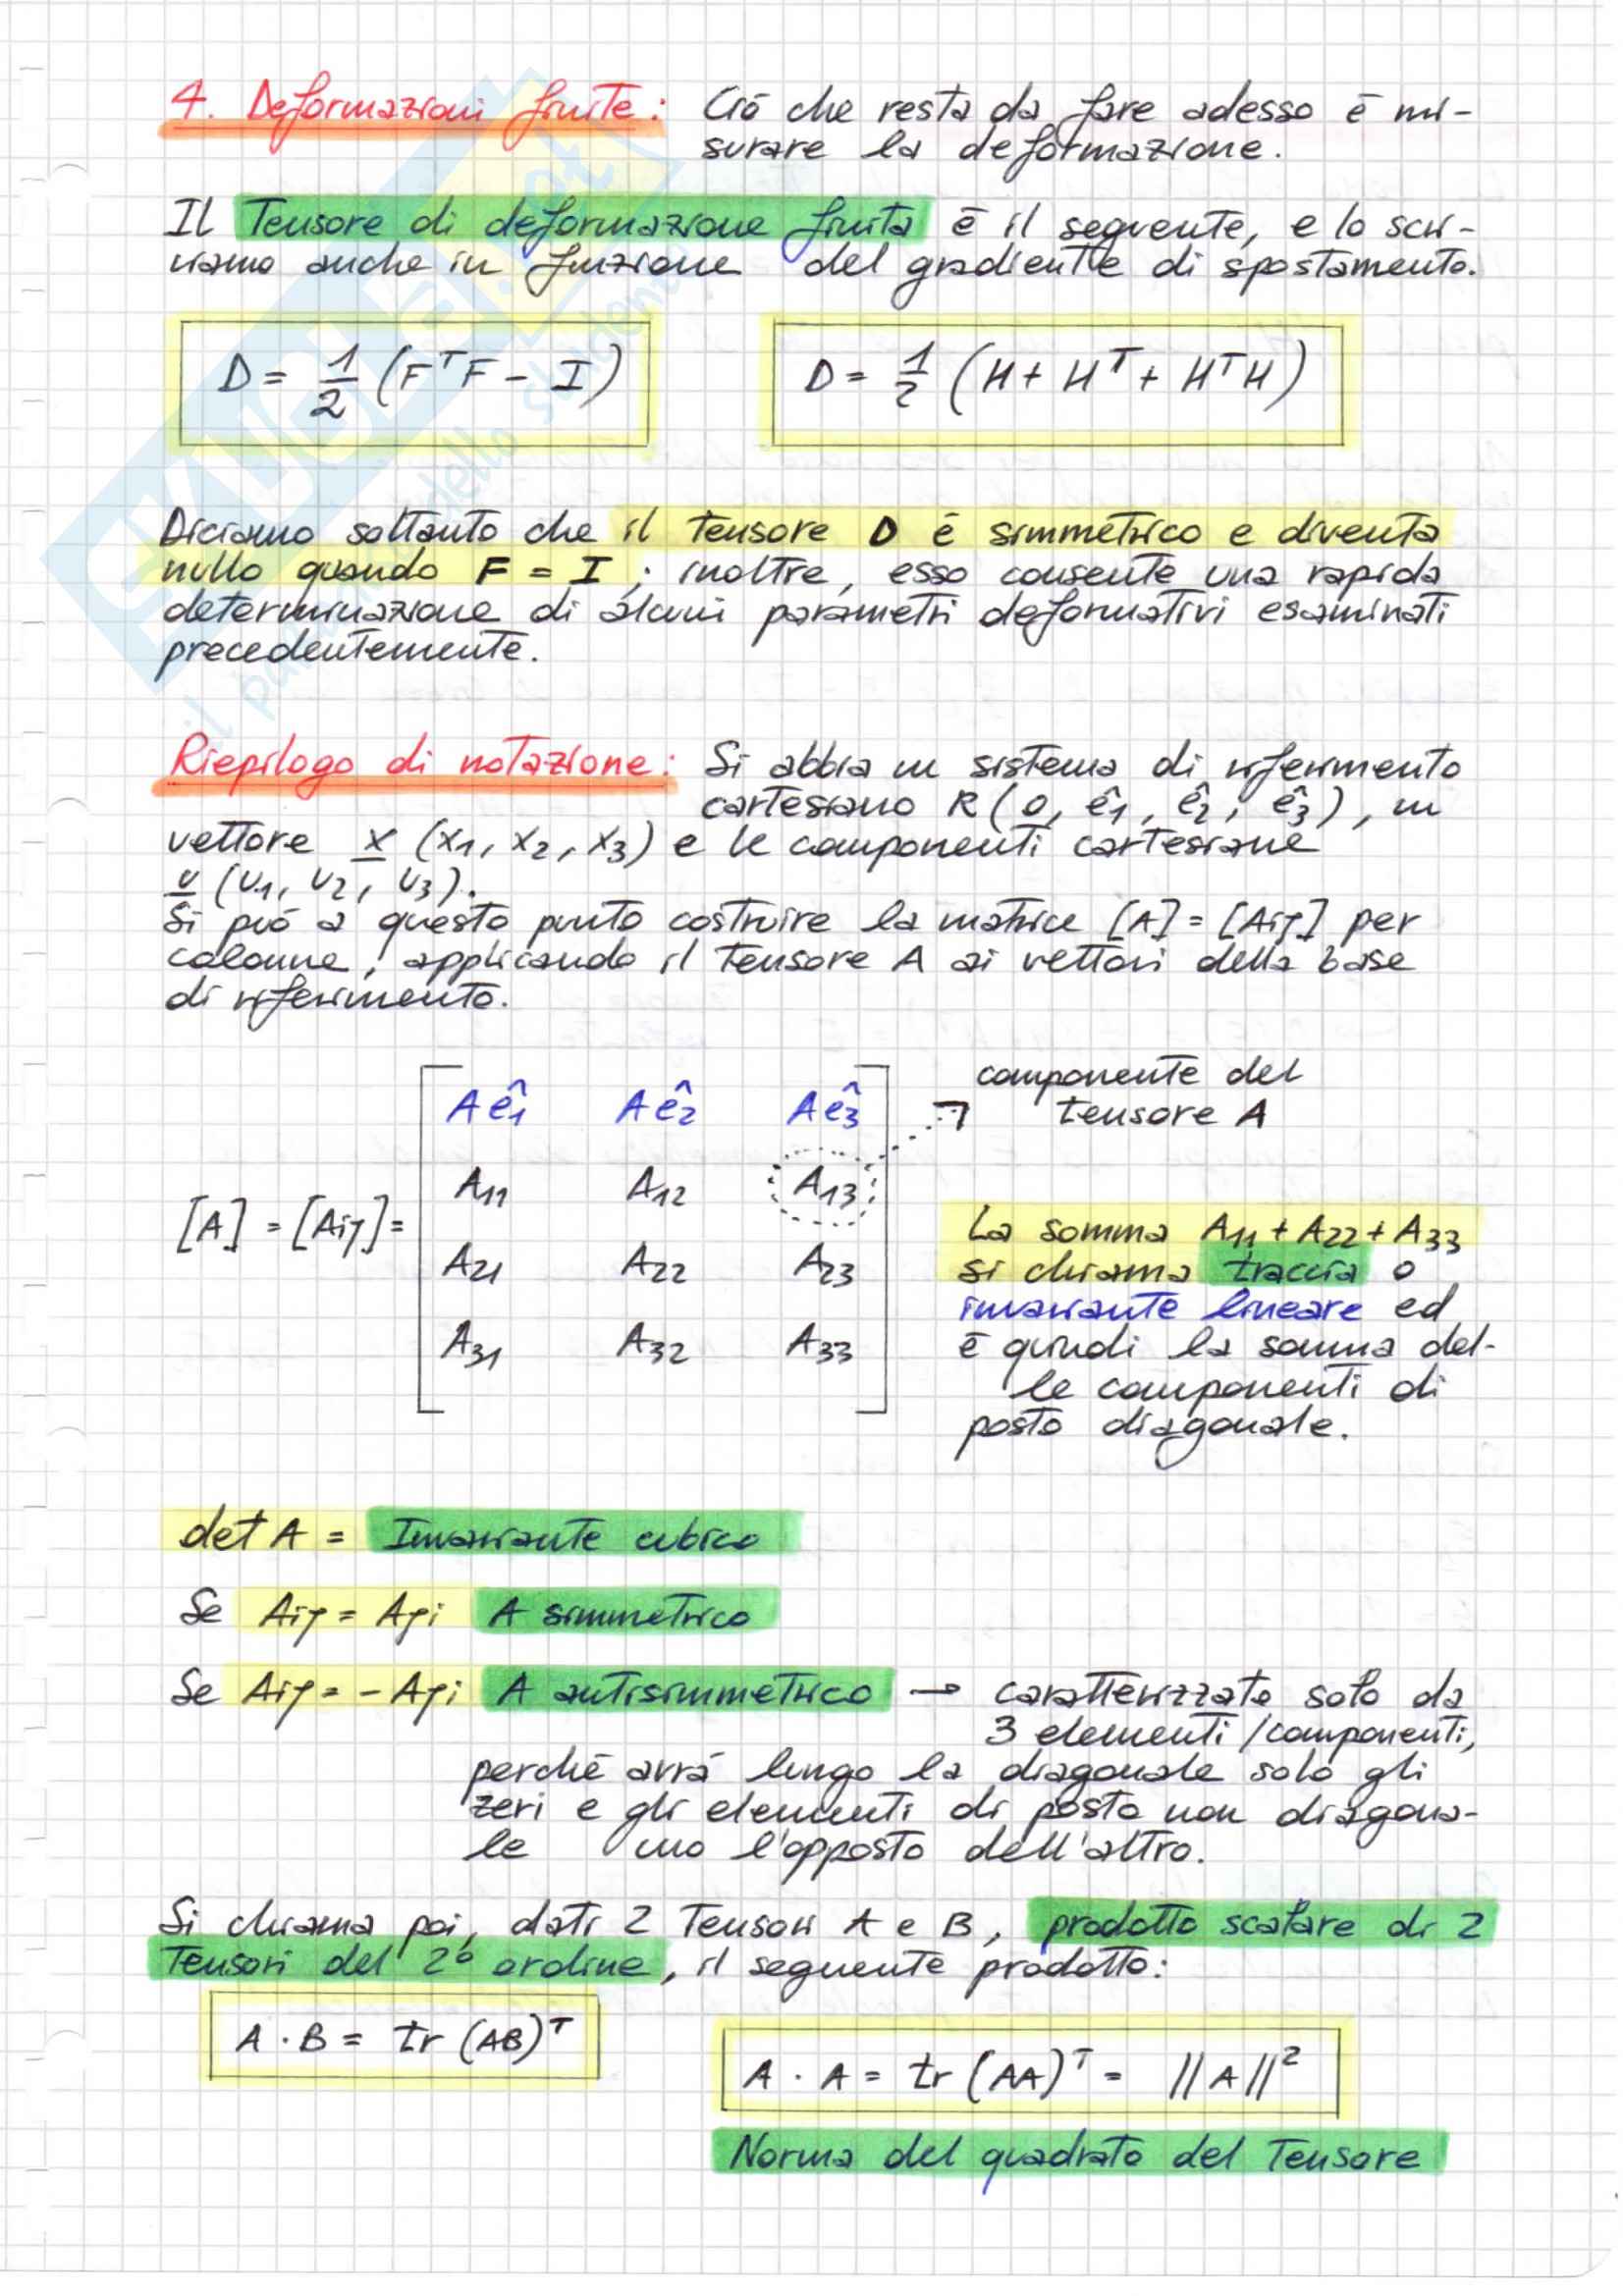 4. Deformazioni finite: Ció che resta da fare adesso é mi-
surare la deformazione.
Il Tensore di deformazione finita é il seguente, e lo scri-
viamo anche in funzione del gradiente di spostamento.
D = 1/2 (FᵀF - I)
D = 1/2 (H + Hᵀ + HᵀH)
Diciamo soltanto che il tensore D é simmetrico e diventa
nullo quando F = I ; inoltre, esso consente una rapida
determinazione di alcuni parametri deformativi esaminati
precedentemente.
Riepilogo di notazione: Si abbia un sistema di riferimento
cartesiano R (0, ê1, ê2, ê3), un
vettore x (x1, x2, x3) e le componenti cartesiane
v (v1, v2, v3).
Si puó a questo punto costruire la matrice [A] = [Aij] per
colonne, applicando il Tensore A ai vettori della base
di riferimento.
componente del
tensore A
Aê1 Aê2 Aê3
A11 A12 A13
[A] = [Aij] =
A21 A22 A23
A31 A32 A33
La somma A11 + A22 + A33
si chiama traccia o
invariante lineare ed
é quindi la somma del-
le componenti di
posto diagonale.
det A = Invariante cubico
Se Aij = Aji A simmetrico
Se Aij = - Aji A antisimmetrico → caratterizzato solo da
3 elementi / componenti,
perché avrá lungo la diagonale solo gli
zeri e gli elementi di posto non diagona-
le uno l'opposto dell'altro.
Si chiama poi, dati 2 Tensori A e B, prodotto scalare di 2
Tensori del 2° ordine, il seguente prodotto:
A · B = tr (AB)ᵀ
A · A = tr (AA)ᵀ = ||A||²
Norma del quadrato del Tensore